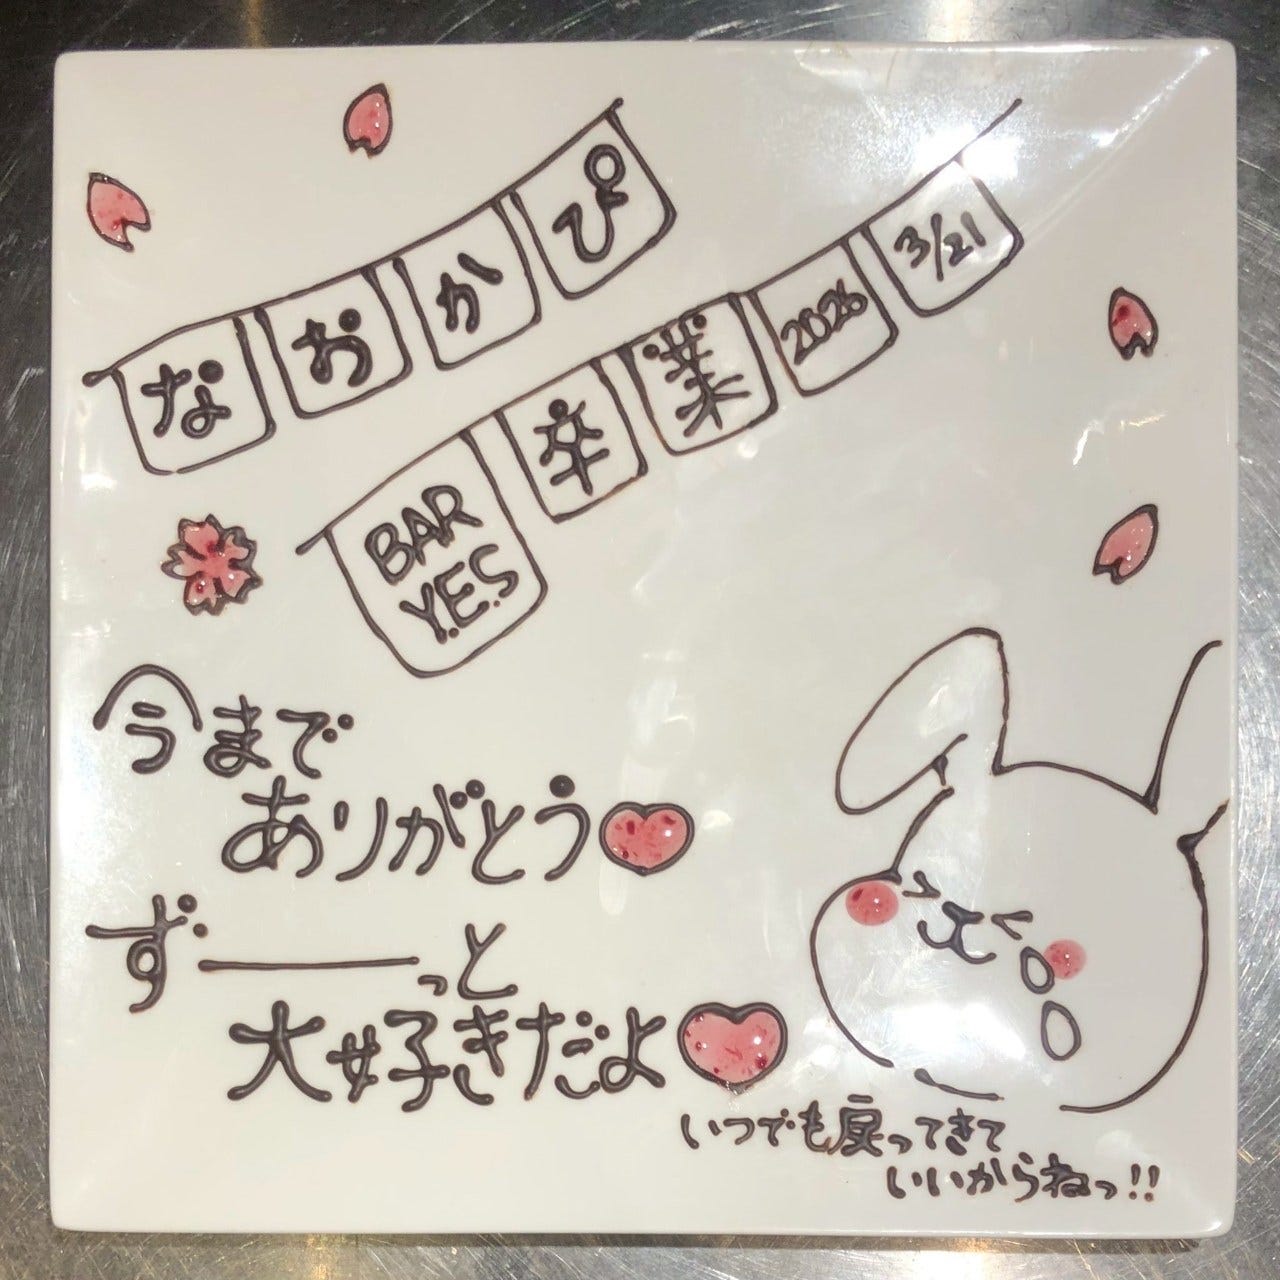 なおかぴ
BAR Y.E.S 卒業 2026 3/21
今まで
ありがとう
ずーーっと
大好きだよ
いつでも戻ってきて
いいからねっ!!